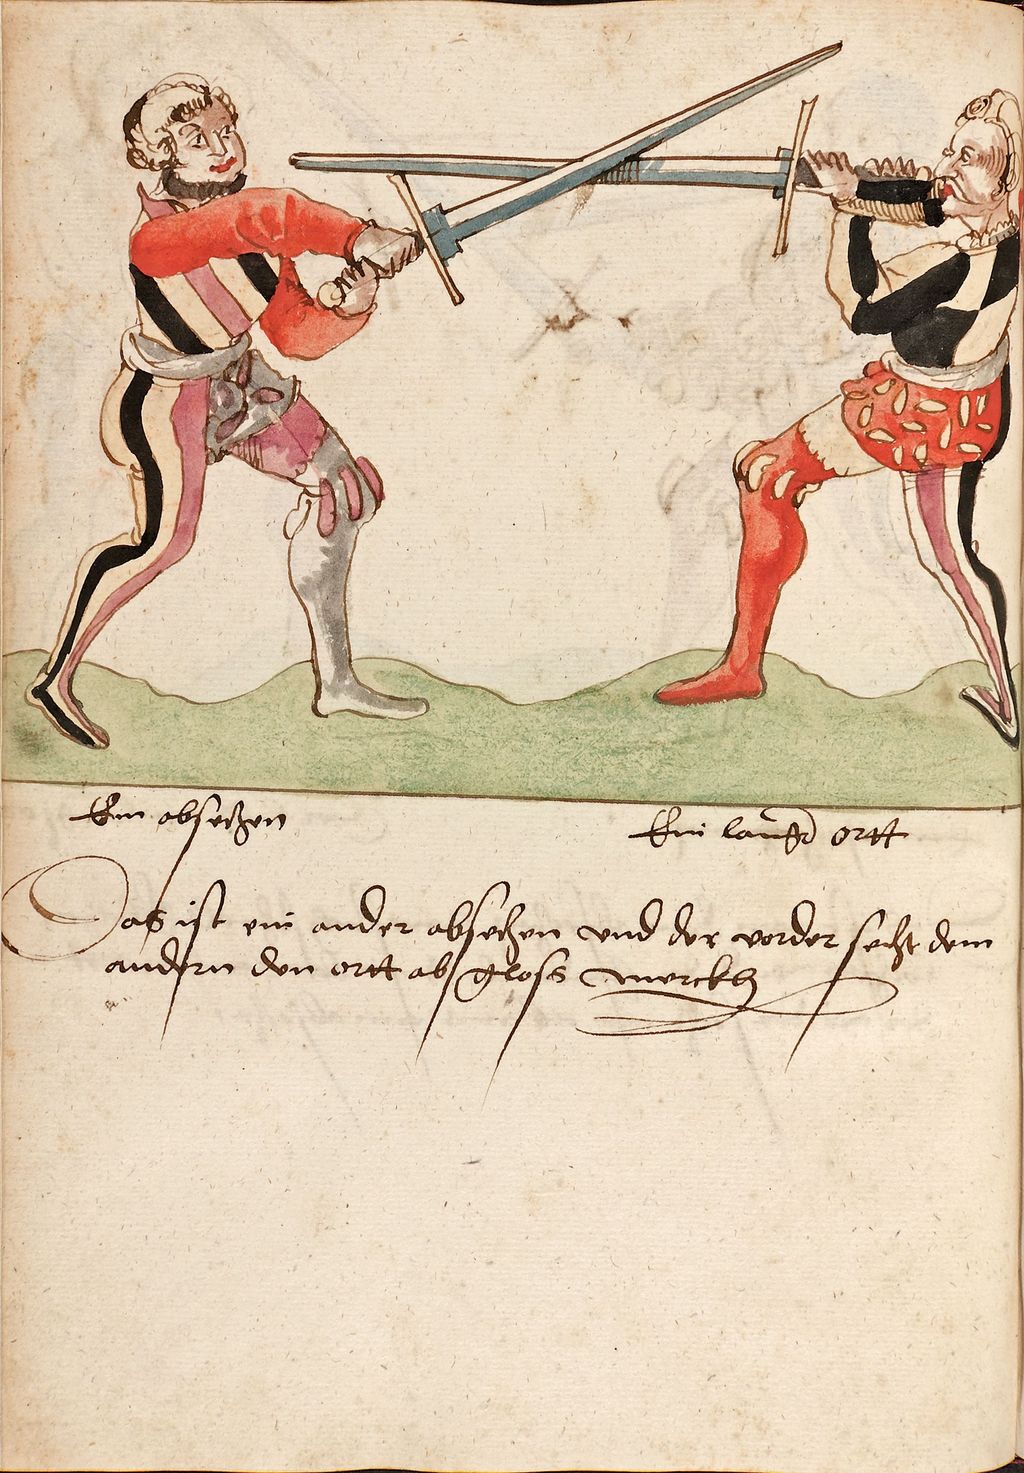 Ein absetzen
Ein langer ortt
Das ist ein ander absetzen und der vorder setzt dem
andern den ortt ab gloss merckh